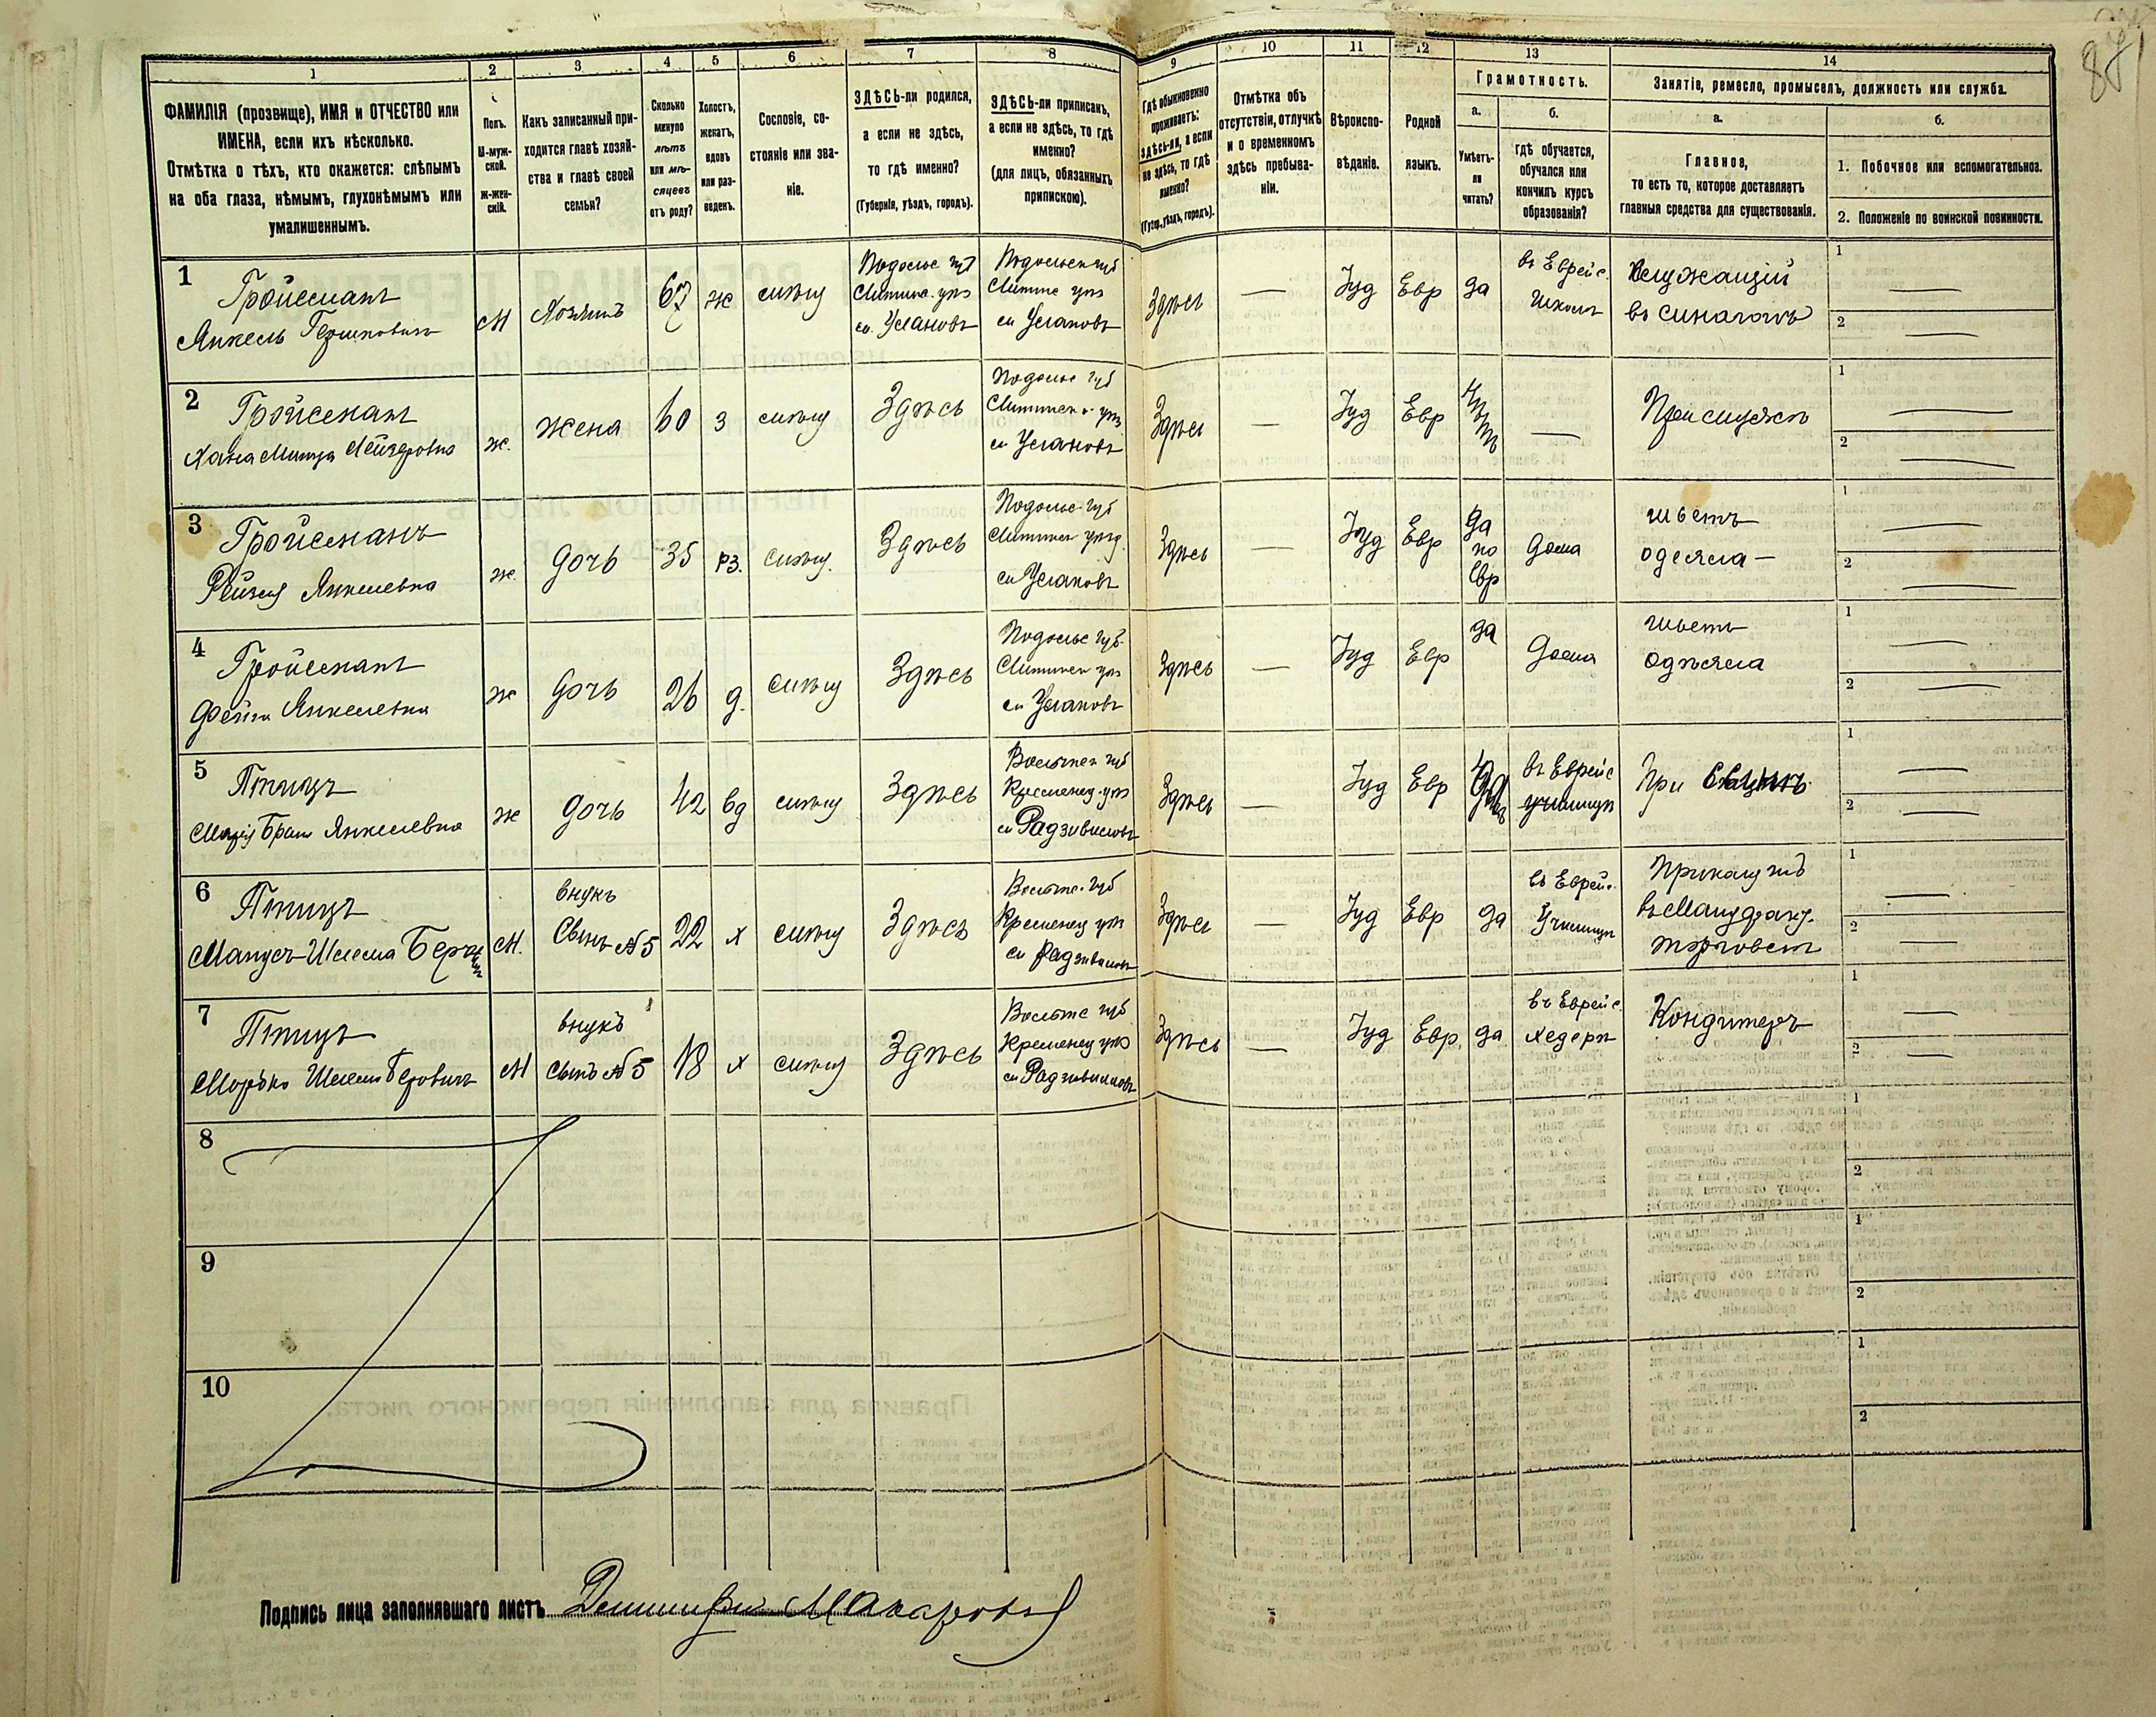 87
1
2
3
4
5
6
7
8
9
10
11
12
13
14
ФАМИЛІЯ (прозвище), ИМЯ и ОТЧЕСТВО или
ИМЕНА, если ихъ нѣсколько.
Отмѣтка о тѣхъ, кто окажется: слѣпымъ
на оба глаза, нѣмымъ, глухонѣмымъ или
умалишеннымъ.
Полъ.
М-муж-
ской.
Ж-жен-
скій.
Какъ записанный при-
ходится главѣ хозяй-
ства и главѣ своей
семьи?
Сколько
минуло
лѣтъ
или мѣ-
сяцевъ
отъ роду?
Холостъ,
женатъ,
вдовъ
или раз-
веденъ.
Сословіе, со-
стояніе или зва-
ніе.
ЗДѢСЬ-ли родился,
а если не здѣсь,
то гдѣ именно?
(Губернія, уѣздъ, городъ).
ЗДѢСЬ-ли приписанъ,
а если не здѣсь, то гдѣ
именно?
(для лицъ, обязанныхъ
припискою).
Гдѣ обыкновенно
проживаетъ:
здѣсь-ли, а если
не здѣсь, то гдѣ
именно?
(Губер., уѣздъ, городъ).
Отмѣтка объ
отсутствіи, отлучкѣ
и о временномъ
здѣсь пребыва-
ніи.
Вѣроиспо-
вѣданіе.
Родной
языкъ.
Грамотность.
а.
Умѣетъ-
ли
читать?
б.
гдѣ обучается,
обучался или
кончилъ курсъ
образованія?
Занятіе, ремесло, промыселъ, должность или служба.
а.
Главное,
то есть то, которое доставляетъ
главныя средства для существованія.
б.
1. Побочное или вспомогательное.
2. Положеніе по воинской повинности.
1
Гройсманъ
Янкель Гершковичъ
М
Хозяинъ
67
ж
Подольс губ
Литинс. уѣз
Улановъ
Подольск губ
Литинс уѣз
Улановъ
Здѣсь
—
Іуд
Евр
да
въ Еврейс.
Школѣ
Служащій
въ синагогѣ
1
—
2
—
2
Гройсманъ
Лейзеровна
ж.
жена
60
з
Здѣсь
Подольс губ
Литинск. уѣз
Улановъ
Здѣсь
—
Іуд
Евр
—
При мужѣ
1
—
2
—
3
Гройсманъ
Рейзя Янкелевна
ж.
дочь
35
рз.
Здѣсь
Подольс губ
Литинск уѣзд.
Улановъ
Здѣсь
—
Іуд
Евр
да
по
Евр
дома
шьетъ
одеяла —
1
—
2
—
4
Гройсманъ
Фейга Янкелевна
ж
дочь
26
д.
Здѣсь
Подольс губ.
Литинск уѣз
Улановъ
Здѣсь
—
Іуд
Евр
да
дома
шьетъ
одѣяла
1
—
2
—
5
Птицъ
Янкелевна
ж
дочь
42
вд
Здѣсь
Волынск губ
Кременец. уѣз
Радзивиловъ
Здѣсь
—
Іуд
Евр
въ Еврейс
училищѣ
При
1
—
2
—
6
Птицъ
Манусъ-Шлема
М.
внукъ
Сынъ №5
22
х
Здѣсь
Волынс. губ
Кременец уѣз
Радзивиловъ
Здѣсь
—
Іуд
Евр
да
въ Еврейс.
Училищѣ
Прикащикъ
въ Мануфакт.
торговлѣ
1
—
2
—
7
Птицъ
Мордко Шлема Беровичъ
М
внукъ
сынъ №5
18
х
Здѣсь
Волынс губ
Кременец уѣз
Радзивиловъ
Здѣсь
—
Іуд
Евр.
да
въ Еврейс.
хедерѣ
Кондитеръ
1
—
2
—
8
1
2
9
1
2
10
1
2
Подпись лица заполнявшаго листъ Дмитрій Макаровъ